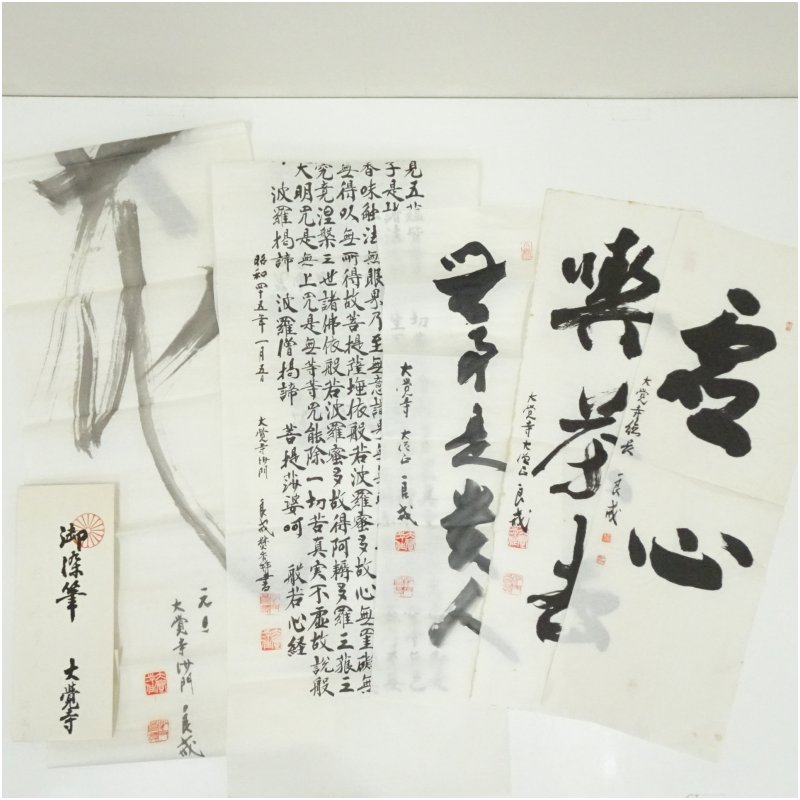 虚心
大覚寺
良戒
喫茶去
大覚寺大僧正 良戒
無事是貴人
大覚寺 大僧正 良戒
見五
子是
香味触法無眼界乃至無意識
無得以無所得故菩提薩埵依般若波羅蜜多故心無罣礙無
究竟涅槃三世諸佛依般若波羅蜜多故得阿耨多羅三藐三
大明咒是無上咒是無等等咒能除一切苦真実不虚故説般
波羅揭諦 波羅僧揭諦 菩提薩婆呵 般若心経
昭和四十五年一月五日 大覚寺沙門 良戒
大覚寺沙門 良戒
御染筆 大覺寺